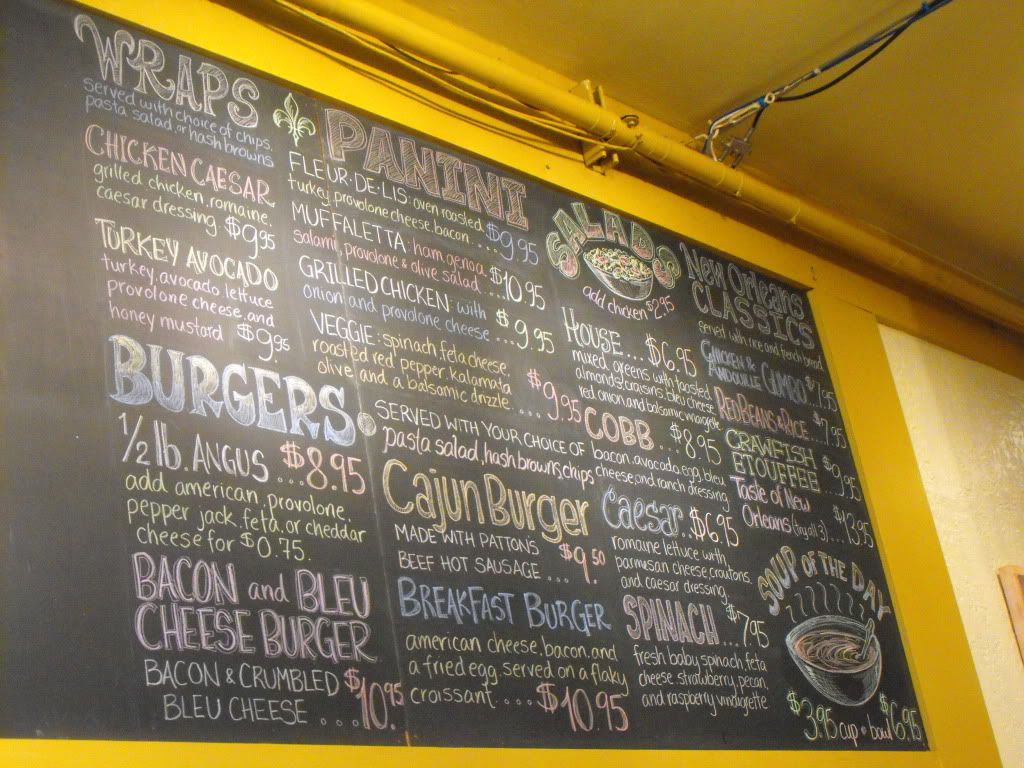 WRAPS
served with choice of chips,
pasta salad, or hash browns
CHICKEN CAESAR
grilled chicken, romaine,
caesar dressing $9.95
TURKEY AVOCADO
turkey, avocado, lettuce
provolone cheese, and
honey mustard $9.95
BURGERS
1/2 lb. ANGUS ... $8.95
add american, provolone
pepper jack, feta, or cheddar
cheese for $0.75.
BACON and BLEU
CHEESE BURGER
BACON & CRUMBLED
BLEU CHEESE ... $10.95
PANINI
FLEUR-DE-LIS: oven roasted
turkey, provolone cheese, bacon ... $9.95
MUFFALETTA: ham, genoa
salami, provolone & olive salad ... $10.95
GRILLED CHICKEN: with
onion and provolone cheese ... $9.95
VEGGIE: spinach, feta cheese,
roasted red pepper, kalamata
olive and a balsamic drizzle ... $9.95
SERVED WITH YOUR CHOICE OF
pasta salad, hash browns, chips
Cajun Burger
MADE WITH PATTON'S
BEEF HOT SAUSAGE ... $9.50
BREAKFAST BURGER
american cheese, bacon, and
a fried egg served on a flaky
croissant .... $10.95
SALADS
add chicken $2.95
HOUSE... $6.95
mixed greens with toasted
almonds, raisins, bleu cheese
red onion, and balsamic vinaigrette
COBB ... $8.95
bacon, avocado, egg, bleu
cheese, and ranch dressing
Caesar... $6.95
romaine lettuce with
parmisan cheese, croutons,
and caesar dressing
SPINACH... $7.95
fresh baby spinach, feta
cheese, strawberry, pecan,
and raspberry vinaigrette
New Orleans
CLASSICS
served with rice and french bread
CHICKEN &
ANDOUILLE GUMBO $7.95
RED BEANS & RICE... $7.95
CRAWFISH
ETOUFFEE... $9.95
Taste of New
Orleans (try all 3)... $13.95
SOUP OF THE DAY
$3.95 cup • bowl $6.95